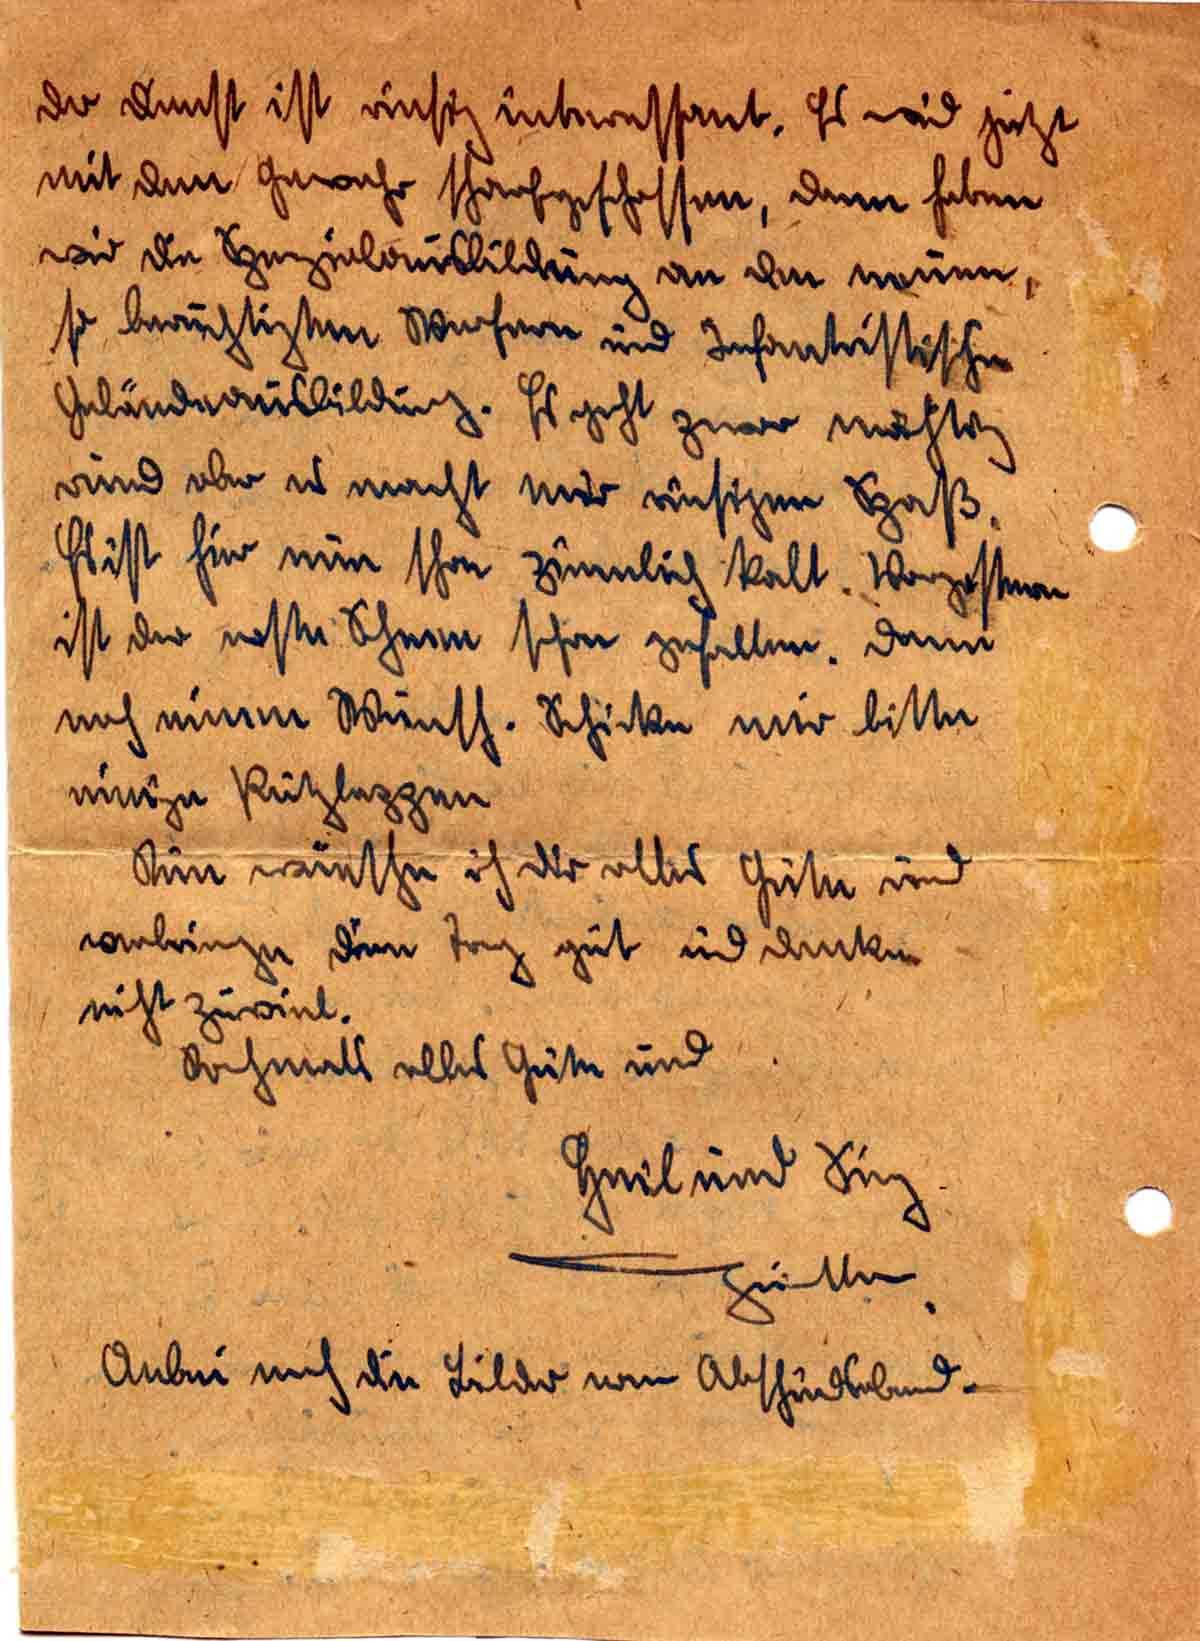 der Dienst ist riesig interessant. Es wird jetzt
mit dem Gewehr scharfgeschossen, dann haben
wir die Spezialausbildung an den neuen,
so berüchtigten Werfern und Infantristische
Geländeausbildung. Es geht zwar mächtig
rund aber es macht mir riesigen Spaß.
Es ist hier nun schon ziemlich kalt. Vorgestern
ist der erste Schnee schon gefallen. Dann
noch einen Wunsch. Schicke mir bitte
einige Putzlappen
Nun wünsche ich dir alles Gute und
verbringe den Tag gut und denke
nicht zuviel.
Nochmals alles Gute und
Heil und Sieg
Günther.
Anbei noch die Bilder vom Abschiedsabend.